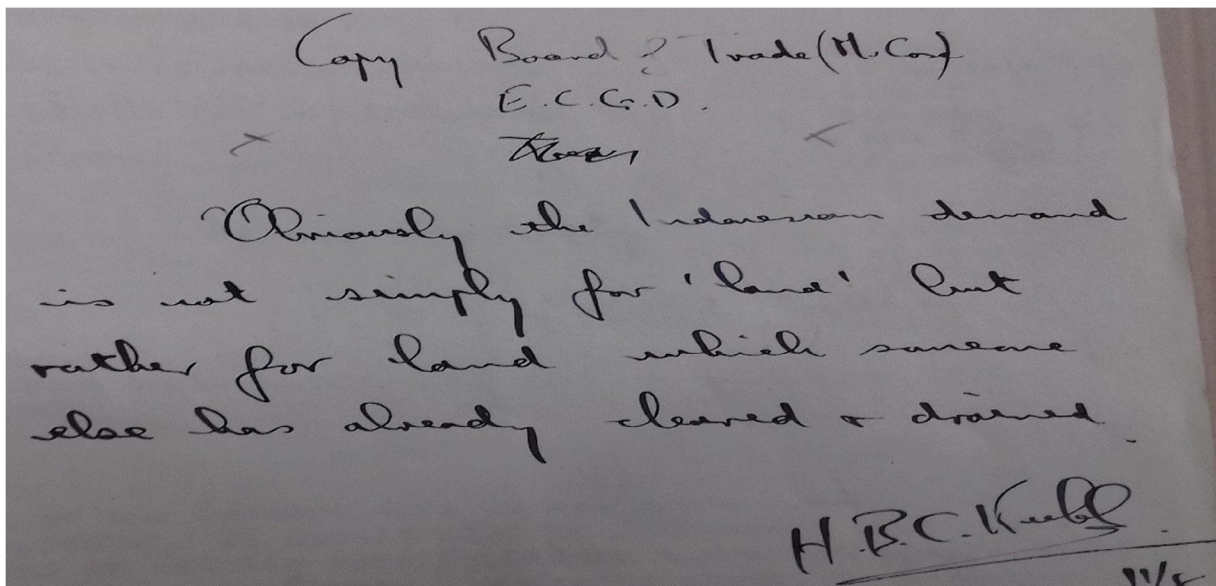 Copy Board of Trade (Mr. Conf)
E.C.G.D.
Obviously the Indonesian demand
is not simply for 'land' but
rather for land which someone
else has already cleared & drained.
H.B.C. Keeble
11/5